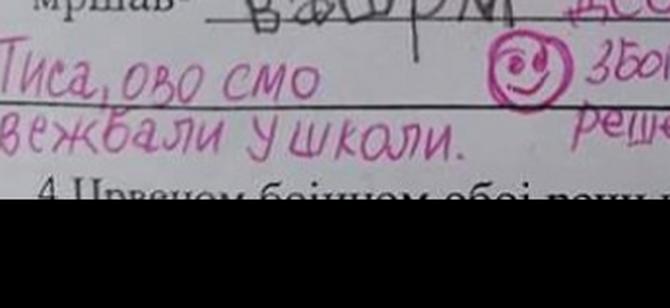 мршав-
Тиса, ово смо
вежбали у школи.
4. Црвеном бојицом обој речи